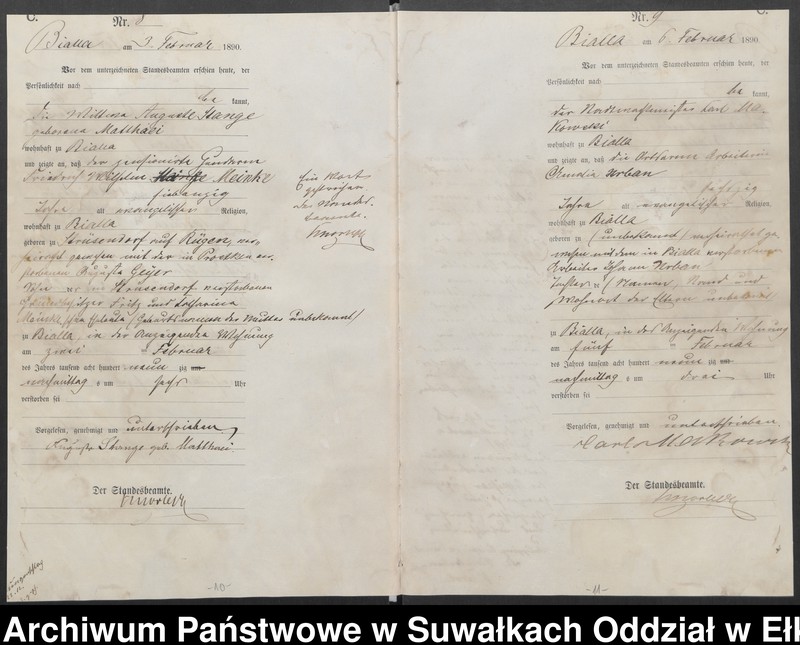 C.
Nr. 8
Bialla am 3. Februar 1890.
Vor dem unterzeichneten Standesbeamten erschien heute, der
Persönlichkeit nach
be kannt,
die Wittwe Auguste Stange
geborene Matthaei
wohnhaft zu Bialla
und zeigte an, daß der pensionirte Gendarm
Friedrich Wilhelm Meinke
siebenzig
Jahre alt evangelischer Religion,
wohnhaft zu Bialla
geboren zu auf Rügen, ver-
heirathet gewesen mit der in Prostken ver-
storbenen Augusta Geijer
Sohn der in verstorbenen
Fritz und Catharina
Meinke'schen Eheleute (Geburtsname der Mutter unbekannt)
zu Bialla, in der Anzeigenden Wohnung
am zwei ten Februar
des Jahres tausend acht hundert neun zig
nachmittag s um sechs Uhr
verstorben sei
Vorgelesen, genehmigt und unterschrieben
Auguste Stange geb. Matthaei
Der Standesbeamte.
Ein Wort
gestrichen
Der Standes-
beamte.
-10-
C.
Nr. 9
Bialla am 6. Februar 1890.
Vor dem unterzeichneten Standesbeamten erschien heute, der
Persönlichkeit nach
be kannt,
der Nachtwachtmeister Carl Ma-
kowski
wohnhaft zu Bialla
und zeigte an, daß die Ortsarme Arbeiterin
Urban
sechzig
Jahre alt evangelischer Religion,
wohnhaft zu Bialla
geboren zu (unbekannt) verheirathet ge-
wesen mit dem in Bialla verstorbenen
Arbeiter Johann Urban
Tochter der (Namen, Stand und
Wohnort der Eltern unbekannt)
zu Bialla, in des Anzeigenden Wohnung
am fünf ten Februar
des Jahres tausend acht hundert neun zig
nachmittag s um drei Uhr
verstorben sei
Vorgelesen, genehmigt und unterschrieben
Carl Makowski
Der Standesbeamte.
-11-
Archiwum Państwowe w Suwałkach Oddział w Ełk